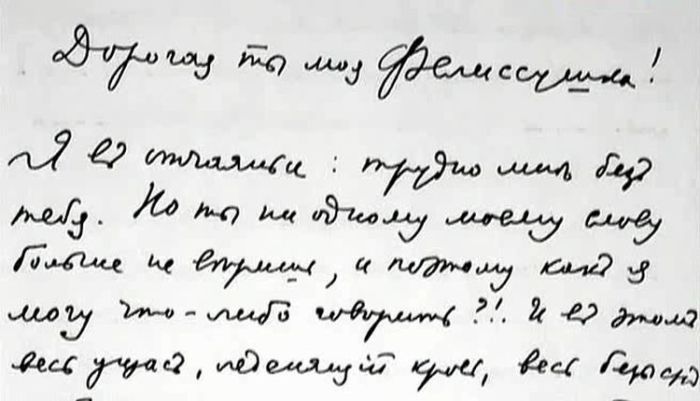 Дорогая ты моя Фелиссушка!
Я въ отчаяньи: трудно мнѣ безъ
тебя. Но ты ни одному моему слову
больше не вѣришь, и поэтому какъ я
могу что-либо говорить?!. И въ этомъ
весь ужасъ, леденящій кровь, весь